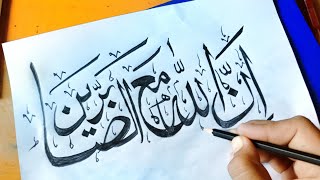 إن الله مع الصابرين